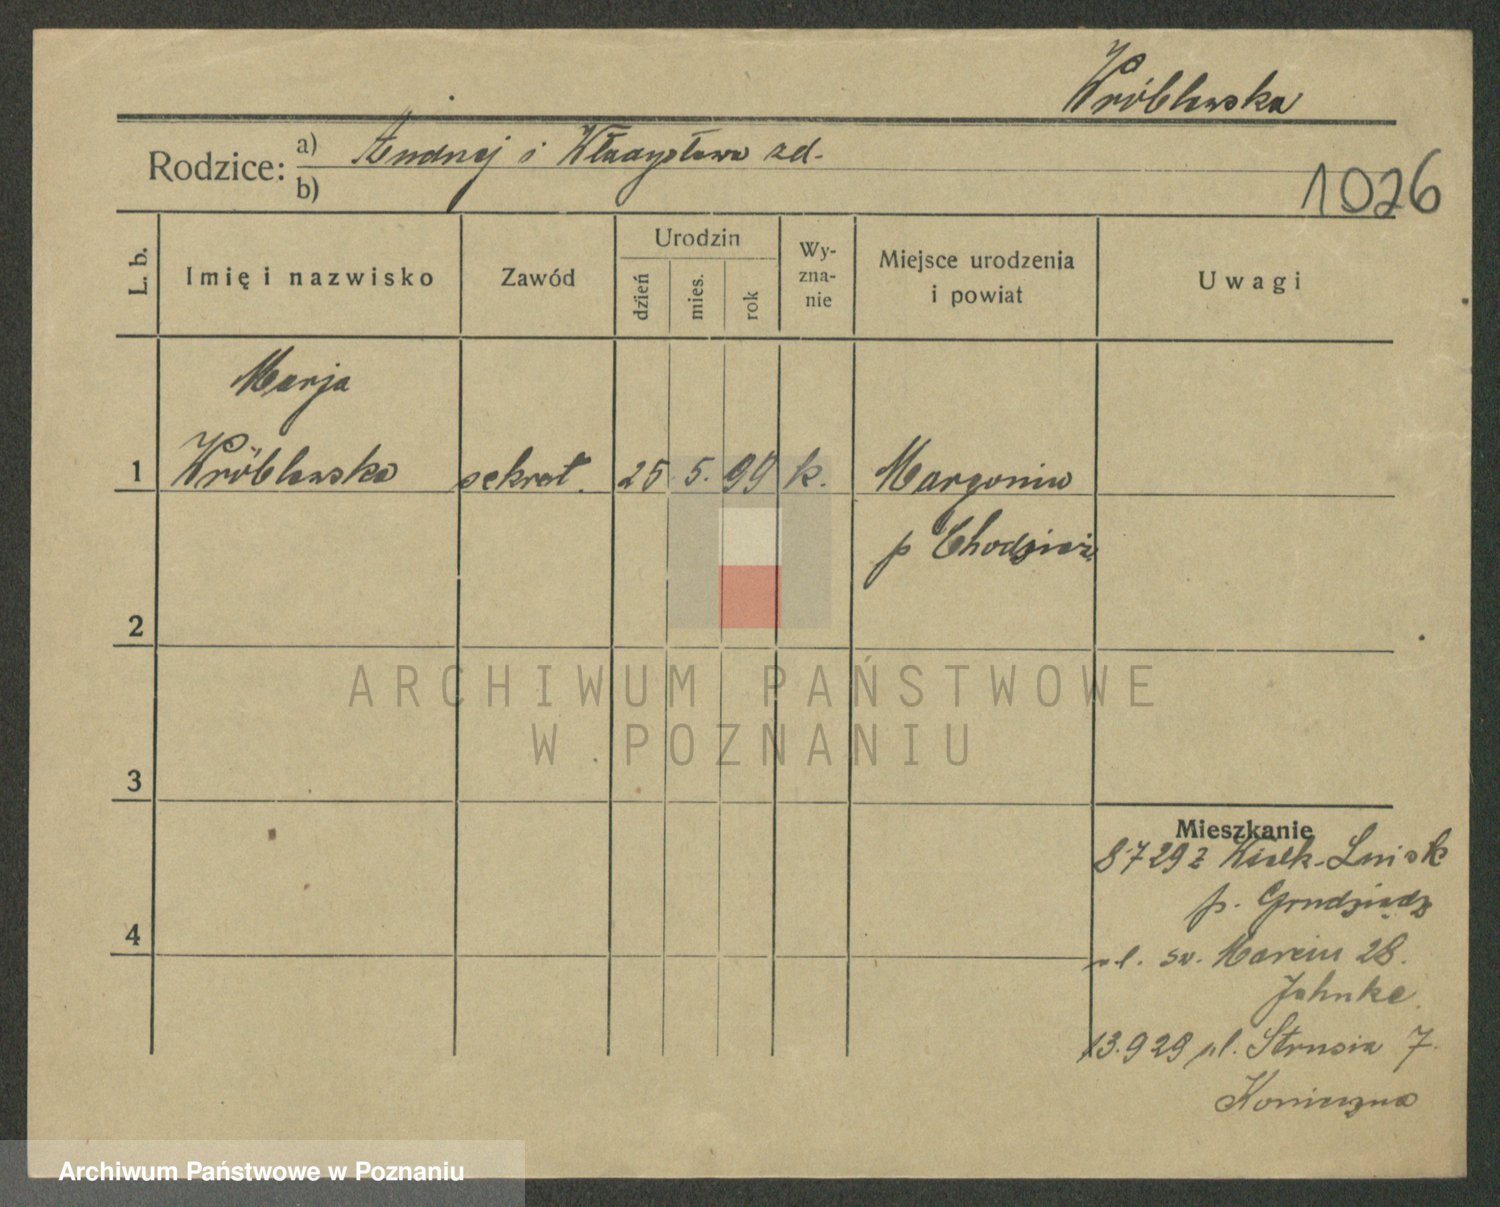 Wróblewska
Rodzice: a) Andrzej i Władysława zd.
b)
1026
L. b.
Imię i nazwisko
Zawód
Urodzin
dzień
mies.
rok
Wy-
zna-
nie
Miejsce urodzenia
i powiat
Uwagi
Marja
1 Wróblewska sekret. 25 5. 99 k. Margonin
p Chodzież
2
3
4
ARCHIWUM PAŃSTWOWE
W POZNANIU
Mieszkanie
8 7 29 z
p. Grudziądz
ul. św. Marcin 28.
Jahnke
13.9 29 ul. Strusia 7.
Konieczna
Archiwum Państwowe w Poznaniu